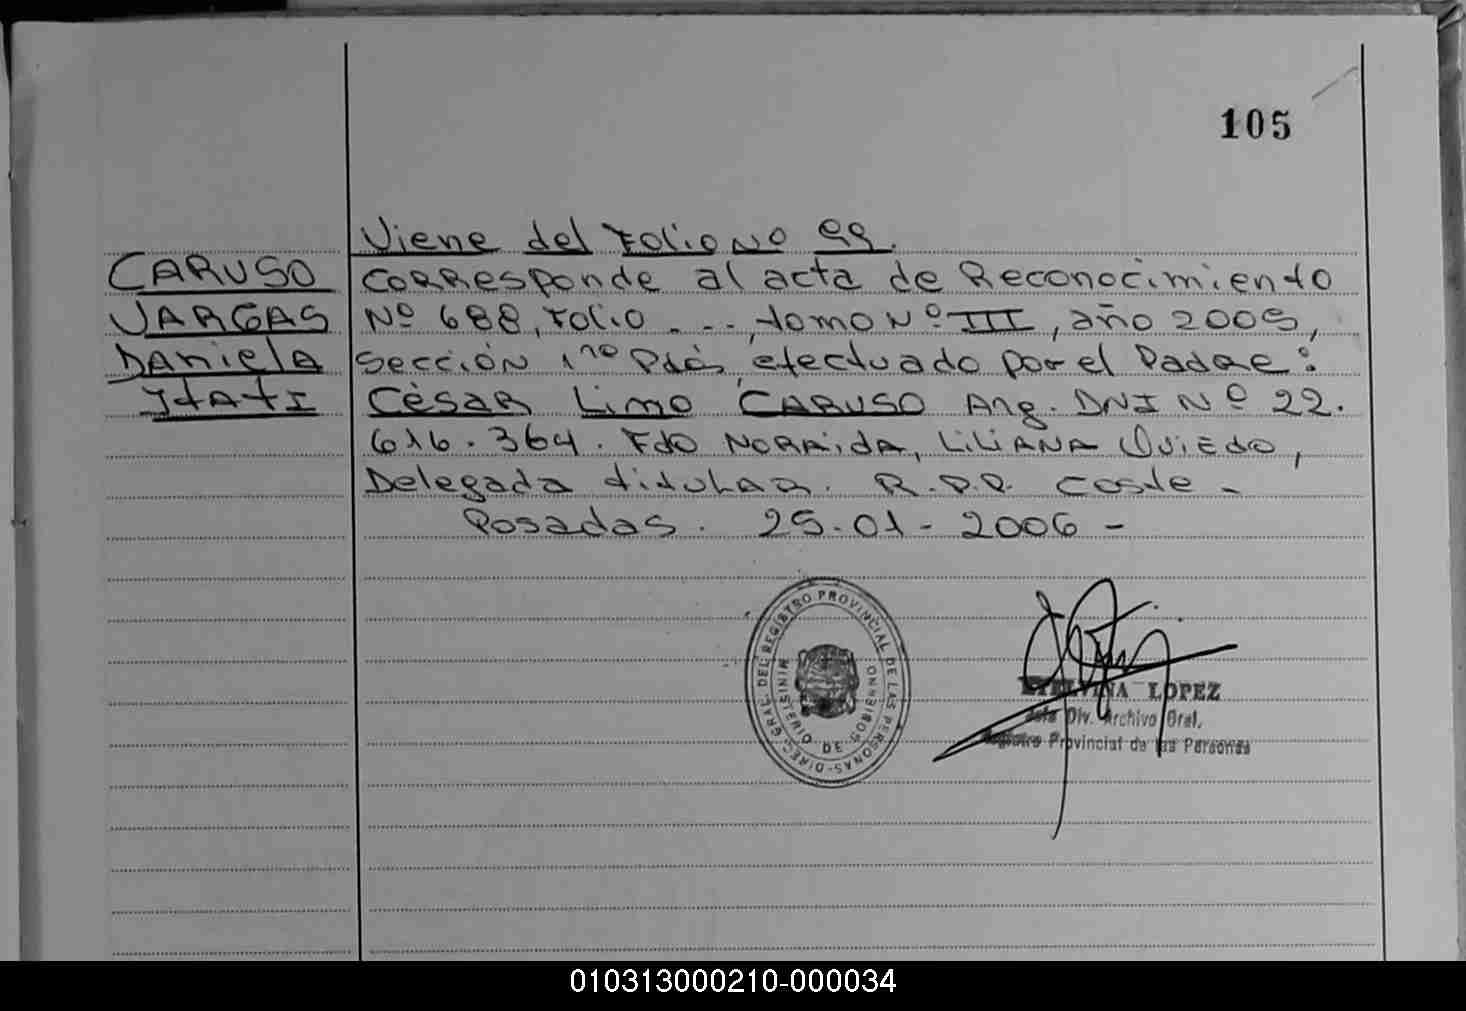 105
Viene del Folio No 99.
CARUSO
VARGAS
Daniela
Ytati
Corresponde al acta de Reconocimiento
Nº 688, Folio . - - , tomo Nº III, año 2005,
Sección 1ro Pdás, efectuado por el Padre:
César Limo CARUSO Arg. DNI Nº 22.
616.364. Fdo NORAidA, LiLiANA OviEdo,
Delegada titular. R.P.P. Coste -
Posadas. 25-01-2006-
DIREC. GRAL. DEL REGISTRO PROVINCIAL DE LAS PERSONAS-
MINISTERIO DE GOBIERNO
ETELVINA LOPEZ
Jefe Div. Archivo Gral.
Registro Provincial de las Personas
010313000210-000034